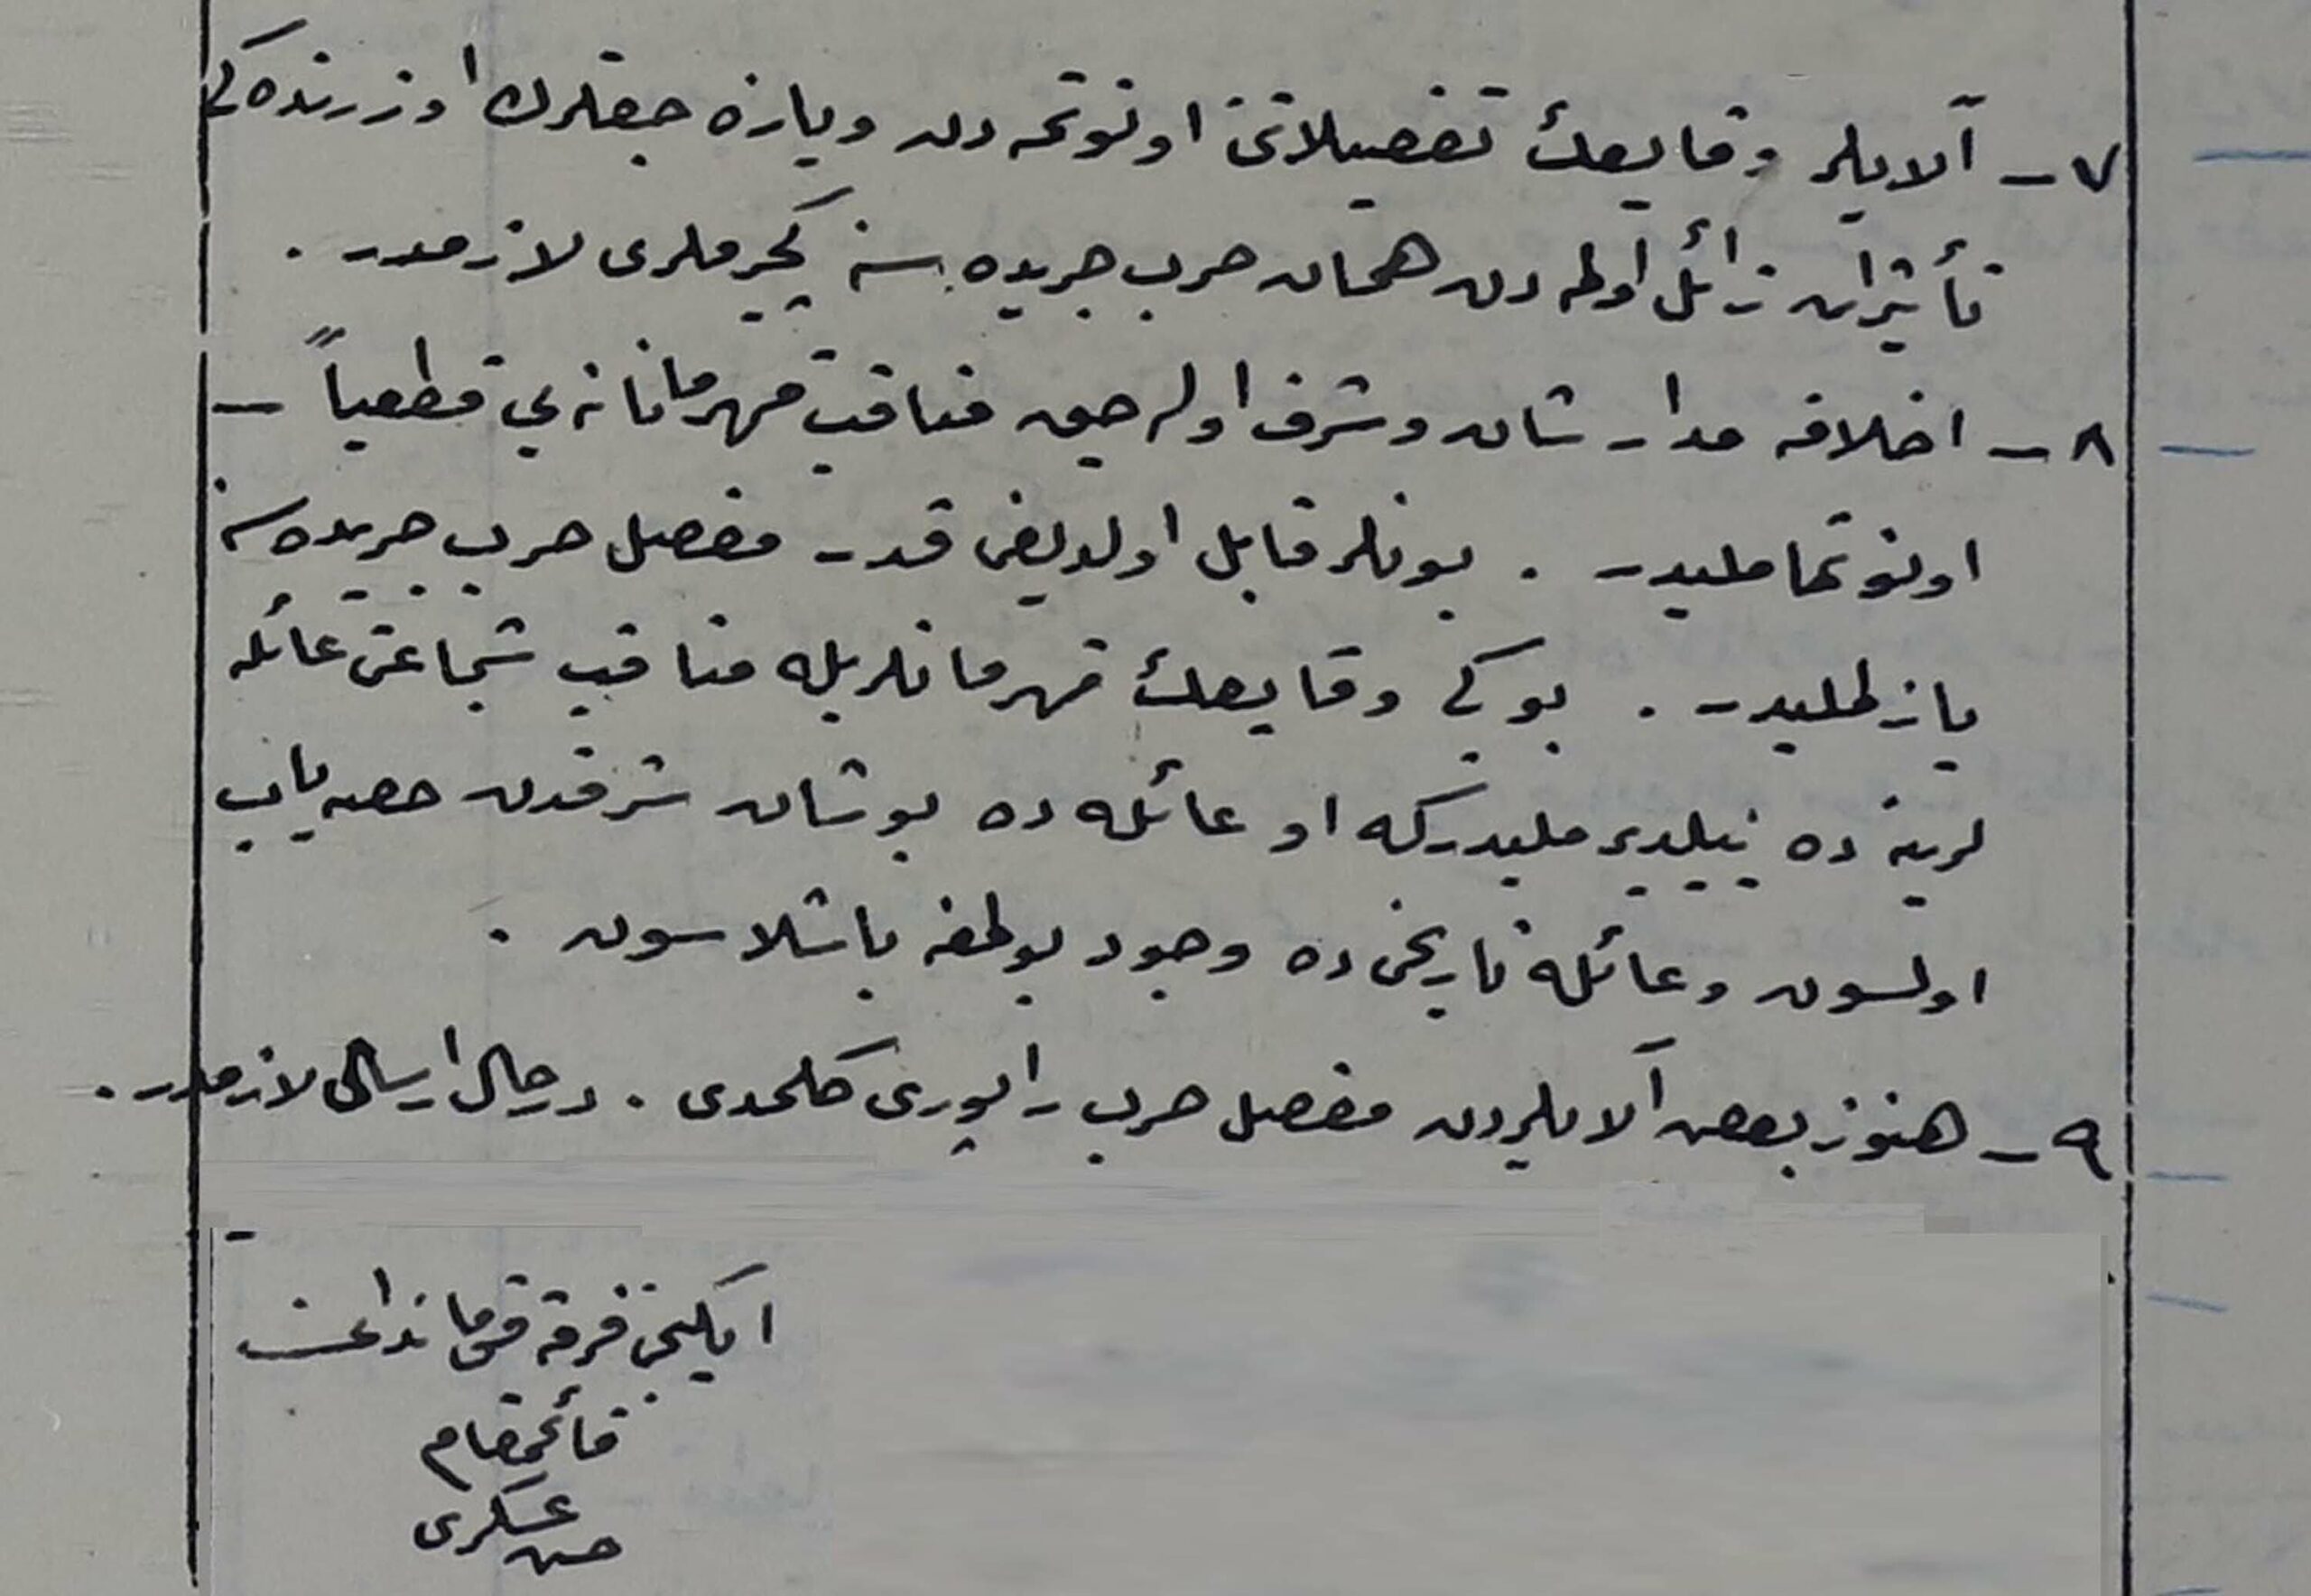 ٧ــ آلایلر وقایعك تفصیلاتنی اونوتمه دن ویازه جقلرك اوزرنده كی
تأثیرات زائل اولمه دن همان حرب جریده سنه كچیرملری لازمدر .
٨ــ اخلافه مدار شان وشرف اوله جق مناقب قهرمانانه یی قطعیاً ــ
اونوتمامليدر . بونلر قابل اولدیغی قدر مفصل حرب جریده سنه
یازلملیدر . بو كبی وقایعك قهرمانلریله مناقب شجاعتی عائله
لرینه ده بیلدیرملیدركه او عائله ده بو شان شرفدن حصه یاب
اولسون وعائله تاریخی ده وجود بولمغه باشلاسون .
٩ــ هنوز بعض آلایلردن مفصل حرب راپوری كلمدی . درحال ارسالی لازمدر .
ایكنجی فرقه قوماندانی
قائممقام
حسن عسكری